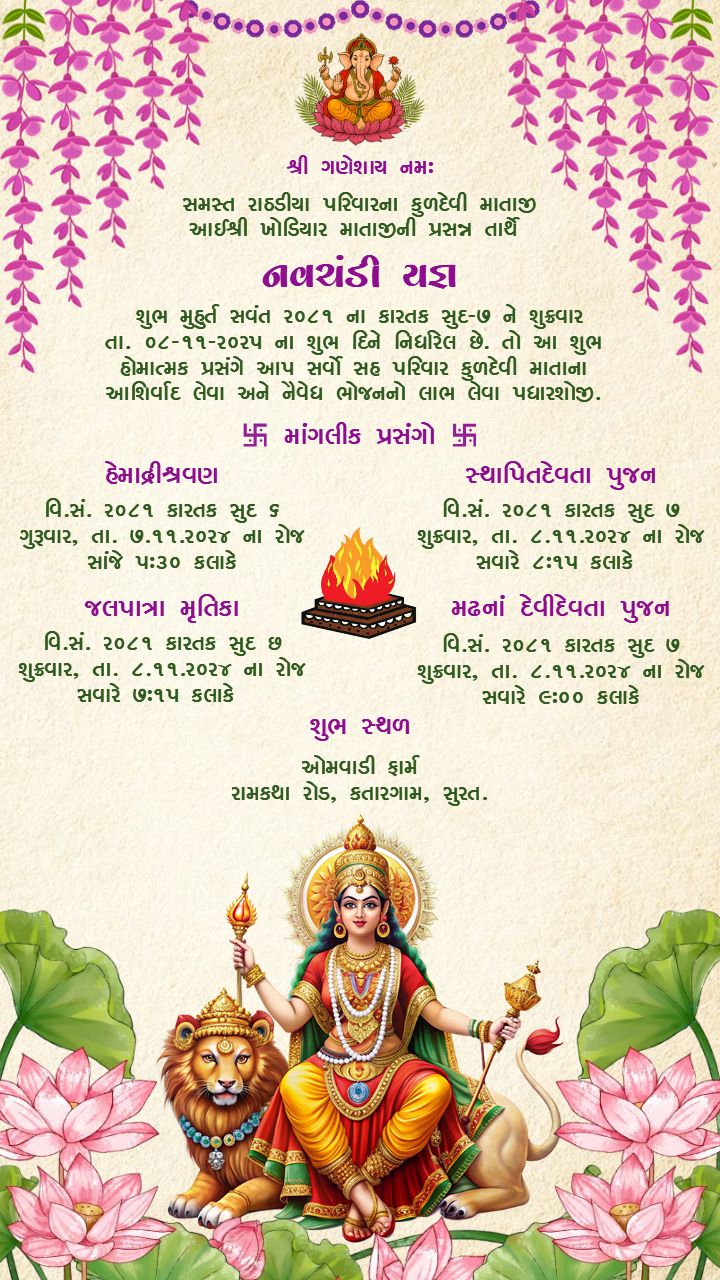 શ્રી ગણેશાય નમઃ
સમસ્ત રાઠડીયા પરિવારના કુળદેવી માતાજી
આઈશ્રી ખોડિયાર માતાજીની પ્રસન્ન તાર્થે
નવચંડી યજ્ઞ
શુભ મુહુર્ત સવંત ૨૦૮૧ ના કારતક સુદ-૭ ને શુક્રવાર
તા. ૦૮-૧૧-૨૦૨૫ ના શુભ દિને નિર્ધારેલ છે. તો આ શુભ
હોમાત્મક પ્રસંગે આપ સર્વો સહ પરિવાર કુળદેવી માતાના
આશિર્વાદ લેવા અને નૈવેદ્ય ભોજનનો લાભ લેવા પધારશોજી.
卐 માંગલીક પ્રસંગો 卐
હેમાદ્રીશ્રવણ
વિ.સં. ૨૦૮૧ કારતક સુદ ૬
ગુરૂવાર, તા. ૭.૧૧.૨૦૨૪ ના રોજ
સાંજે ૫:૩૦ કલાકે
સ્થાપિતદેવતા પુજન
વિ.સં. ૨૦૮૧ કારતક સુદ ૭
શુક્રવાર, તા. ૮.૧૧.૨૦૨૪ ના રોજ
સવારે ૮:૧૫ કલાકે
જલપાત્રા મૃતિકા
વિ.સં. ૨૦૮૧ કારતક સુદ છ
શુક્રવાર, તા. ૮.૧૧.૨૦૨૪ ના રોજ
સવારે ૭:૧૫ કલાકે
મઢનાં દેવીદેવતા પુજન
વિ.સં. ૨૦૮૧ કારતક સુદ ૭
શુક્રવાર, તા. ૮.૧૧.૨૦૨૪ ના રોજ
સવારે ૯:૦૦ કલાકે
શુભ સ્થળ
ઓમવાડી ફાર્મ
રામકથા રોડ, કતારગામ, સુરત.